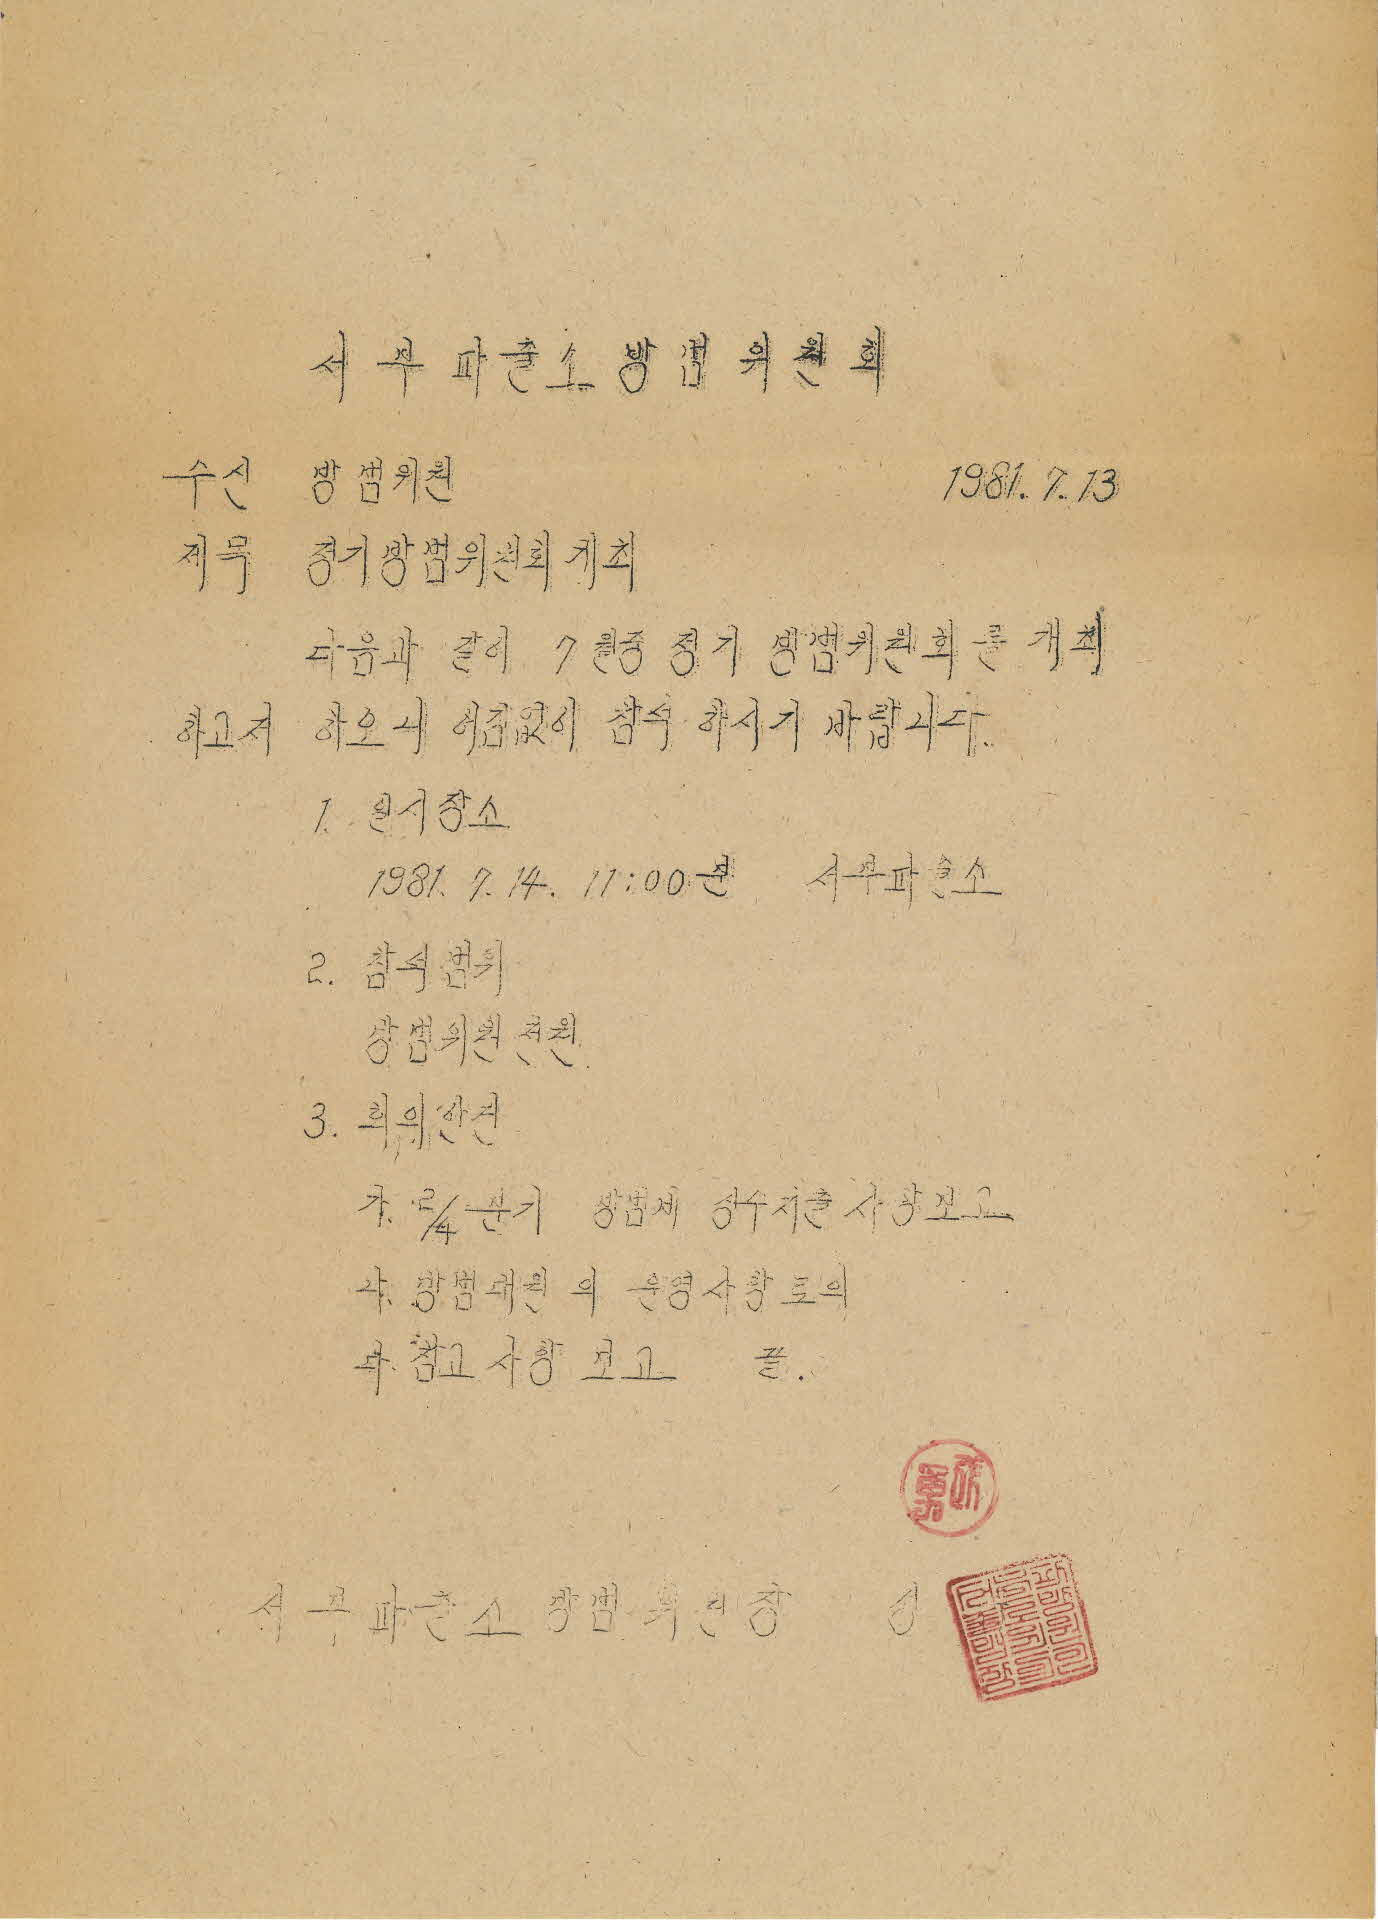 서부파출소방범위원회
수신 방범위원 1981. 7. 13
제목 정기방범위원회개최
다음과 같이 7월중 정기 방범위원회를 개최
하고저 하오니 어김없이 참석 하시기 바랍니다.
1. 일시장소
1981. 7. 14. 11:00분 서부파출소
2. 참석범위
방범위원전원
3. 회의안건
가. 2/4분기 방범비 징수지출사항보고
나. 방범대원의 운영사항토의
다. 참고사항 보고 끝.
서부파출소방범위원장